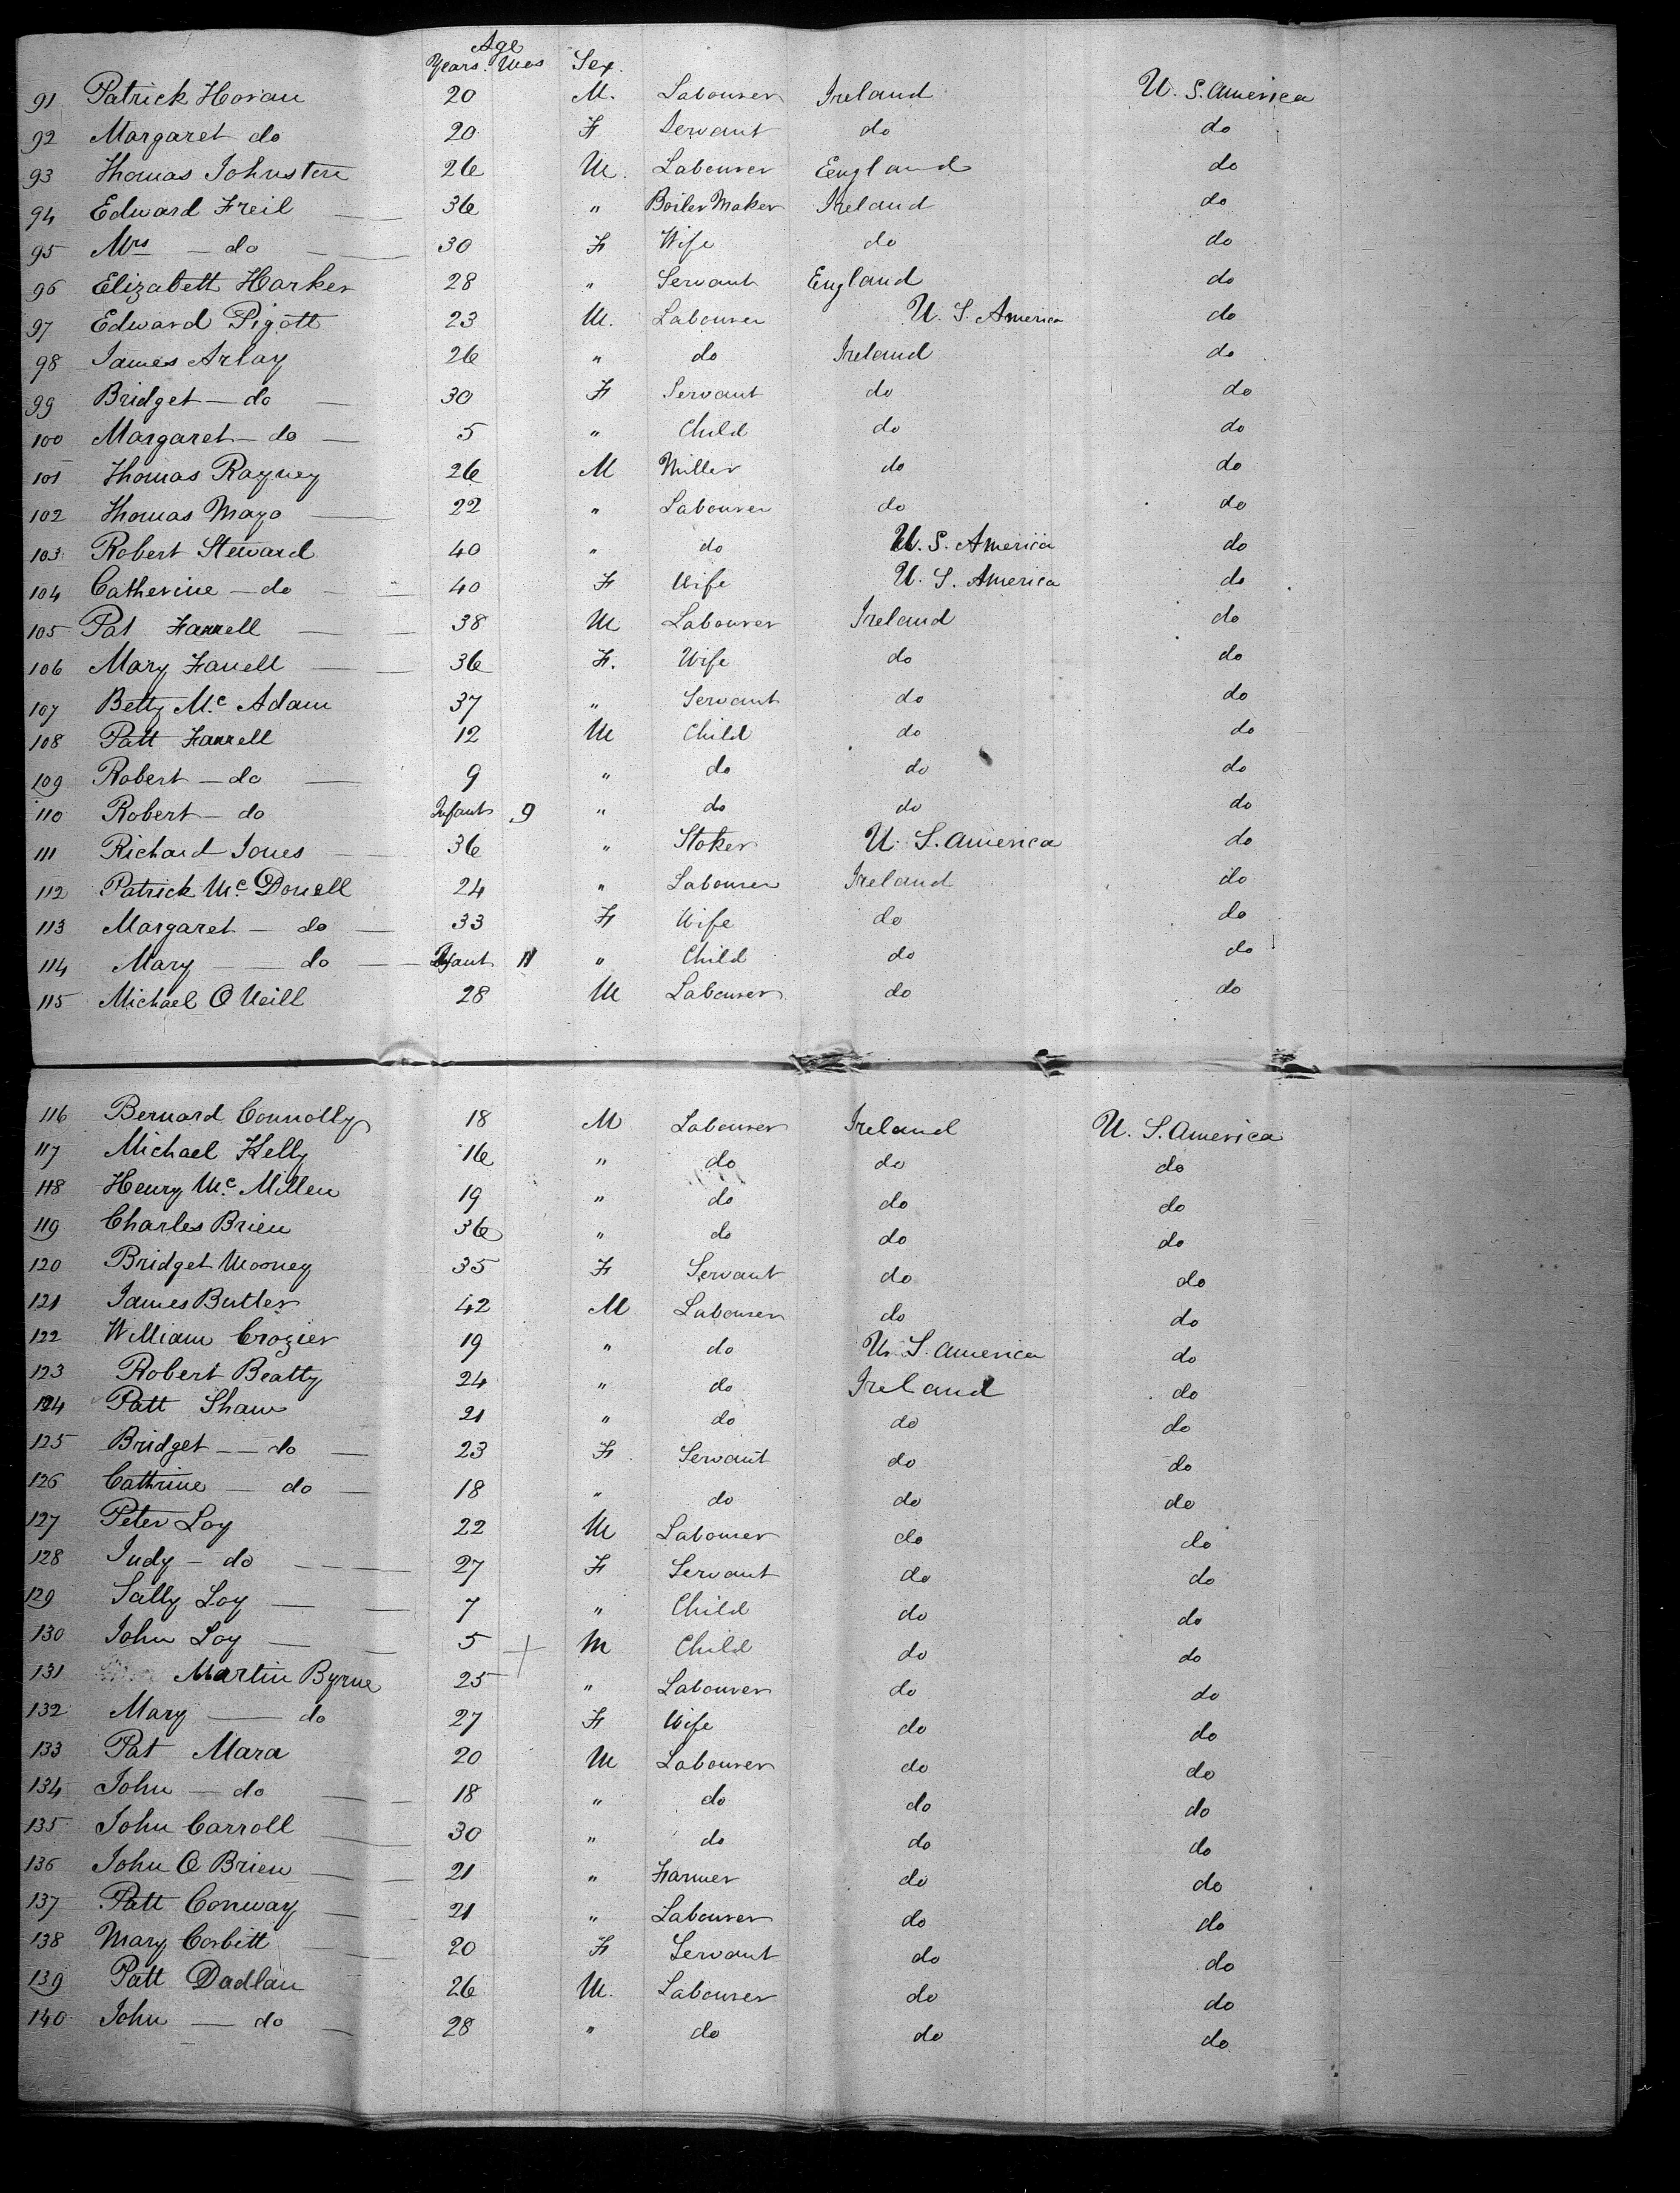 Age
Years. Mos Sex.
91 Patrick Horan 20 M. Labourer Ireland U. S. America
92 Margaret do 20 F Servant do do
93 Thomas Johnston 26 M. Labourer England do
94 Edward Freil 36 " Boiler Maker Ireland do
95 Mrs do 30 F Wife do do
96 Elizabett Harker 28 " Servant England do
97 Edward Pigott 23 M. Labourer U. S. America do
98 James Arlay 26 " do Ireland do
99 Bridget do 30 F Servant do do
100 Margaret do 5 " Child do do
101 Thomas Rayney 26 M Miller do do
102 Thomas Mayo 22 " Labourer do do
103 Robert Steward 40 " do U. S. America do
104 Catherine do 40 F Wife U. S. America do
105 Pat Farrell 38 M Labourer Ireland do
106 Mary Farrell 36 F. Wife do do
107 Betty Mc Adam 37 " Servant do do
108 Patt Farrell 12 M Child do do
109 Robert do 9 " do do do
110 Robert do Infant 9 " do do do
111 Richard Jones 36 " Stoker U. S. America do
112 Patrick Mc Donell 24 " Labourer Ireland do
113 Margaret do 33 F Wife do do
114 Mary do Infant 11 " Child do do
115 Michael O Neill 28 M Labourer do do
116 Bernard Connolly 18 M Labourer Ireland U. S. America
117 Michael Kelly 16 " do do do
118 Henry Mc Millen 19 " do do do
119 Charles Brien 36 " do do do
120 Bridget Mooney 35 F Servant do do
121 James Butler 42 M Labourer do do
122 William Crozier 19 " do U. S. America do
123 Robert Beatty 24 " do Ireland do
124 Patt Shaw 21 " do do do
125 Bridget do 23 F Servant do do
126 Cathrine do 18 " do do do
127 Peter Loy 22 M Labourer do do
128 Judy do 27 F Servant do do
129 Sally Loy 7 " Child do do
130 John Loy 5 + M Child do do
131 Martin Byrne 25 " Labourer do do
132 Mary do 27 F Wife do do
133 Pat Mara 20 M Labourer do do
134 John do 18 " do do do
135 John Carroll 30 " do do do
136 John O Brien 21 " Farmer do do
137 Patt Conway 21 " Labourer do do
138 Mary Corbitt 20 F Servant do do
139 Patt Dadlan 26 M. Labourer do do
140 John do 28 " do do do